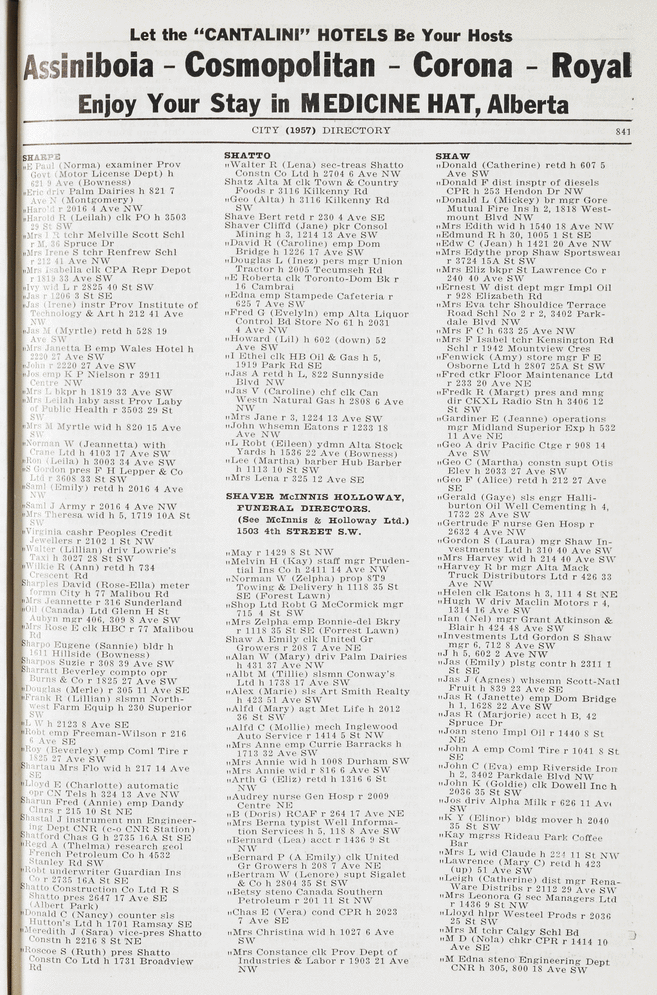 Let the "CANTALINI" HOTELS Be Your Hosts
Assiniboia - Cosmopolitan - Corona - Royal
Enjoy Your Stay in MEDICINE HAT, Alberta
CITY (1957) DIRECTORY 841
SHARPE
"E Paul (Norma) examiner Prov
Govt (Motor License Dept) h
621 9 Ave (Bowness)
"Eric driv Palm Dairies h 821 7
Ave N (Montgomery)
"Harold r 2016 4 Ave NW
"Harold R (Leilah) clk PO h 3503
29 St SW
"Mrs I N tchr Melville Scott Schl
r M, 36 Spruce Dr
"Mrs Irene S tchr Renfrew Schl
r 212 41 Ave NW
"Mrs Isabella clk CPA Repr Depot
r 1819 33 Ave SW
"Ivy wid L r 2825 40 St SW
"Jas r 1206 3 St SE
"Jas (Irene) instr Prov Institute of
Technology & Art h 212 41 Ave
NW
"Jas M (Myrtle) retd h 528 19
Ave SW
"Mrs Janetta B emp Wales Hotel h
2220 27 Ave SW
"John r 2220 27 Ave SW
"Jos emp K P Nielson r 3911
Centre NW
"Mrs L bkpr h 1819 33 Ave SW
"Mrs Leilah laby asst Prov Laby
of Public Health r 3503 29 St
SW
"Mrs M Myrtle wid h 820 15 Ave
SW
"Norman W (Jeannetta) with
Crane Ltd h 4103 17 Ave SW
"Ron (Leila) h 3003 34 Ave SW
"S Gordon pres F H Lepper & Co
Ltd r 3608 33 St SW
"Saml (Emily) retd h 2016 4 Ave
NW
"Saml J Army r 2016 4 Ave NW
"Mrs Theresa wid h 5, 1719 10A St
SW
"Virginia cashr Peoples Credit
Jewellers r 2102 1 St NW
"Walter (Lillian) driv Lowrie's
Taxi h 3027 28 St SW
"Wilkie R (Ann) retd h 734
Crescent Rd
Sharples David (Rose-Ella) meter
formn City h 77 Malibou Rd
"Mrs Jeannette r 316 Sunderland
"Oil (Canada) Ltd Glenn H St
Aubyn mgr 406, 309 8 Ave SW
"Mrs Rose E clk HBC r 77 Malibou
Rd
Sharpo Eugene (Sannie) bldr h
1611 Hillside (Bowness)
Sharpos Suzie r 308 39 Ave SW
Sharratt Beverley compto opr
Burns & Co r 1825 27 Ave SW
"Douglas (Merle) r 305 11 Ave SE
"Frank R (Lillian) slsmn North-
west Farm Equip h 230 Superior
SW
"L W h 2123 8 Ave SE
"Robt emp Freeman-Wilson r 216
6 Ave SE
"Roy (Beverley) emp Coml Tire r
1825 27 Ave SW
Shartau Mrs Flo wid h 217 14 Ave
SE
"Lloyd E (Charlotte) automatic
opr CN Tels h 324 13 Ave NW
Sharun Fred (Annie) emp Dandy
Clnrs r 215 10 St NE
Shastal J instrument mn Engineer-
ing Dept CNR (c-o CNR Station)
Shatford Chas G h 2735 16A St SE
"Regd A (Thelma) research geol
French Petroleum Co h 4532
Stanley Rd SW
"Robt underwriter Guardian Ins
Co r 2735 16A St SE
Shatto Construction Co Ltd R S
Shatto pres 2647 17 Ave SW
(Albert Park)
"Donald C (Nancy) counter sls
Hutton's Ltd h 1701 Ramsay SE
"Meredith J (Sara) vice-pres Shatto
Constn h 2216 8 St NE
"Roscoe S (Ruth) pres Shatto
Constn Co Ltd h 1731 Broadview
Rd
SHATTO
"Walter R (Lena) sec-treas Shatto
Constn Co Ltd h 2704 6 Ave NW
Shatz Alta M clk Town & Country
Foods r 3116 Kilkenny Rd
"Geo (Alta) h 3116 Kilkenny Rd
SW
Shave Bert retd r 230 4 Ave SE
Shaver Cliff (Jane) pkr Consol
Mining h 3, 1214 13 Ave SW
"David R (Caroline) emp Dom
Bridge h 1226 17 Ave SW
"Douglas L (Inez) pers mgr Union
Tractor h 2005 Tecumseh Rd
"E Roberta clk Toronto-Dom Bk r
16 Cambrai
"Edna emp Stampede Cafeteria r
625 7 Ave SW
"Fred G (Evelyn) emp Alta Liquor
Control Bd Store No 61 h 2031
4 Ave NW
"Howard (Lil) h 602 (down) 52
Ave SW
"I Ethel clk HB Oil & Gas h 5,
1919 Park Rd SE
"Jas A retd h L, 822 Sunnyside
Blvd NW
"Jas V (Caroline) chf clk Can
Westn Natural Gas h 2808 6 Ave
NW
"Mrs Jane r 3, 1224 13 Ave SW
"John whsemn Eatons r 1233 18
Ave NW
"L Robt (Eileen) ydmn Alta Stock
Yards h 1536 22 Ave (Bowness)
"Lee (Martha) barber Hub Barber
h 1113 10 St SW
"Mrs Lena r 325 12 Ave SE
SHAVER McINNIS HOLLOWAY,
FUNERAL DIRECTORS.
(See McInnis & Holloway Ltd.)
1503 4th STREET S.W.
"May r 1429 8 St NW
"Melvin H (Kay) staff mgr Pruden-
tial Ins Co h 2411 14 Ave NW
"Norman W (Zelpha) prop 8T9
Towing & Delivery h 1118 35 St
SE (Forest Lawn)
"Shop Ltd Robt G McCormick mgr
715 4 St SW
"Mrs Zelpha emp Bonnie-del Bkry
r 1118 35 St SE (Forest Lawn)
Shaw A Emily clk United Gr
Growers r 208 7 Ave NE
"Alan W (Mary) driv Palm Dairies
h 431 37 Ave NW
"Albt M (Tillie) slsmn Conway's
Ltd h 1738 17 Ave SW
"Alex (Marie) sls Art Smith Realty
h 423 51 Ave SW
"Alfd (Mary) agt Met Life h 2012
36 St SW
"Alfd C (Mollie) mech Inglewood
Auto Service r 1414 5 St NW
"Mrs Anne emp Currie Barracks h
1713 32 Ave SW
"Mrs Annie wid h 1008 Durham SW
"Mrs Annie wid r 816 6 Ave SW
"Arth G (Eliz) retd h 1316 6 St
NW
"Audrey nurse Gen Hosp r 2009
Centre NE
"B (Doris) RCAF r 264 17 Ave NE
"Mrs Berna typist Well Informa-
tion Services h 5, 118 8 Ave SW
"Bernard (Lea) acct r 1436 9 St
NW
"Bernard P (A Emily) clk United
Gr Growers h 208 7 Ave NE
"Bertram W (Lenore) supt Sigalet
& Co h 2804 35 St SW
"Betsy steno Canada Southern
Petroleum r 201 11 St NW
"Chas E (Vera) cond CPR h 2023
7 Ave SE
"Mrs Christina wid h 1027 6 Ave
SW
"Mrs Constance clk Prov Dept of
Industries & Labor r 1903 21 Ave
NW
SHAW
"Donald (Catherine) retd h 607 5
Ave SW
"Donald F dist insptr of diesels
CPR h 253 Hendon Dr NW
"Donald L (Mickey) br mgr Gore
Mutual Fire Ins h 2, 1818 West-
mount Blvd NW
"Mrs Edith wid h 1540 18 Ave NW
"Edmund R h 30, 1005 1 St SE
"Edw C (Jean) h 1421 20 Ave NW
"Mrs Edythe prop Shaw Sportswear
r 3724 15A St SW
"Mrs Eliz bkpr St Lawrence Co r
240 40 Ave SW
"Ernest W dist dept mgr Impl Oil
r 928 Elizabeth Rd
"Mrs Eva tchr Shouldice Terrace
Road Schl No 2 r 2, 3402 Park-
dale Blvd NW
"Mrs F C h 633 25 Ave NW
"Mrs F Isabel tchr Kensington Rd
Schl r 1942 Mountview Cres
"Fenwick (Amy) store mgr F E
Osborne Ltd h 2807 25A St SW
"Fred ctkr Floor Maintenance Ltd
r 233 20 Ave NE
"Fredk R (Margt) pres and mng
dir CKXL Radio Stn h 3406 12
St SW
"Gardiner E (Jeanne) operations
mgr Midland Superior Exp h 532
11 Ave NE
"Geo A driv Pacific Ctge r 908 14
Ave SW
"Geo C (Martha) constn supt Otis
Elev h 2033 27 Ave SW
"Geo F (Alice) retd h 212 27 Ave
SE
"Gerald (Gaye) sls engr Halli-
burton Oil Well Cementing h 4,
1732 28 Ave SW
"Gertrude F nurse Gen Hosp r
2632 4 Ave NW
"Gordon S (Laura) mgr Shaw In-
vestments Ltd h 310 40 Ave SW
"Mrs Harvey wid h 214 40 Ave SW
"Harvey R br mgr Alta Mack
Truck Distributors Ltd r 426 33
Ave NW
"Helen clk Eatons h 3, 111 4 St NE
"Hugh W driv Maclin Motors r 4,
1314 16 Ave SW
"Ian (Nel) mgr Grant Atkinson &
Blair h 424 48 Ave SW
"Investments Ltd Gordon S Shaw
mgr 6, 712 8 Ave SW
"J h 5, 602 2 Ave NW
"Jas (Emily) plstg contr h 2311 1
St SE
"Jas J (Agnes) whsemn Scott-Natl
Fruit h 839 23 Ave SE
"Jas R (Janette) emp Dom Bridge
h 1, 1628 22 Ave SW
"Jas R (Marjorie) acct h B, 42
Spruce Dr
"Joan steno Impl Oil r 1440 8 St
NE
"John A emp Coml Tire r 1041 8 St
SE
"John C (Eva) emp Riverside Iron
h 2, 3402 Parkdale Blvd NW
"John K (Goldie) clk Dowell Inc h
2036 35 St SW
"Jos driv Alpha Milk r 626 11 Ave
SW
"K Y (Elinor) bldg mover h 2040
35 St SW
"Kay mgrss Rideau Park Coffee
Bar
"Mrs L wid Claude h 224 11 St NW
"Lawrence (Mary C) retd h 423
(up) 51 Ave SW
"Leigh (Catherine) dist mgr Rena-
Ware Distribs r 2112 29 Ave SW
"Mrs Leonora G sec Managers Ltd
r 1436 9 St NW
"Lloyd hlpr Westeel Prods r 2036
25 St SW
"Mrs M tchr Calgy Schl Bd
"M D (Nola) chkr CPR r 1414 10
Ave SE
"M Edna steno Engineering Dept
CNR h 305, 800 18 Ave SW